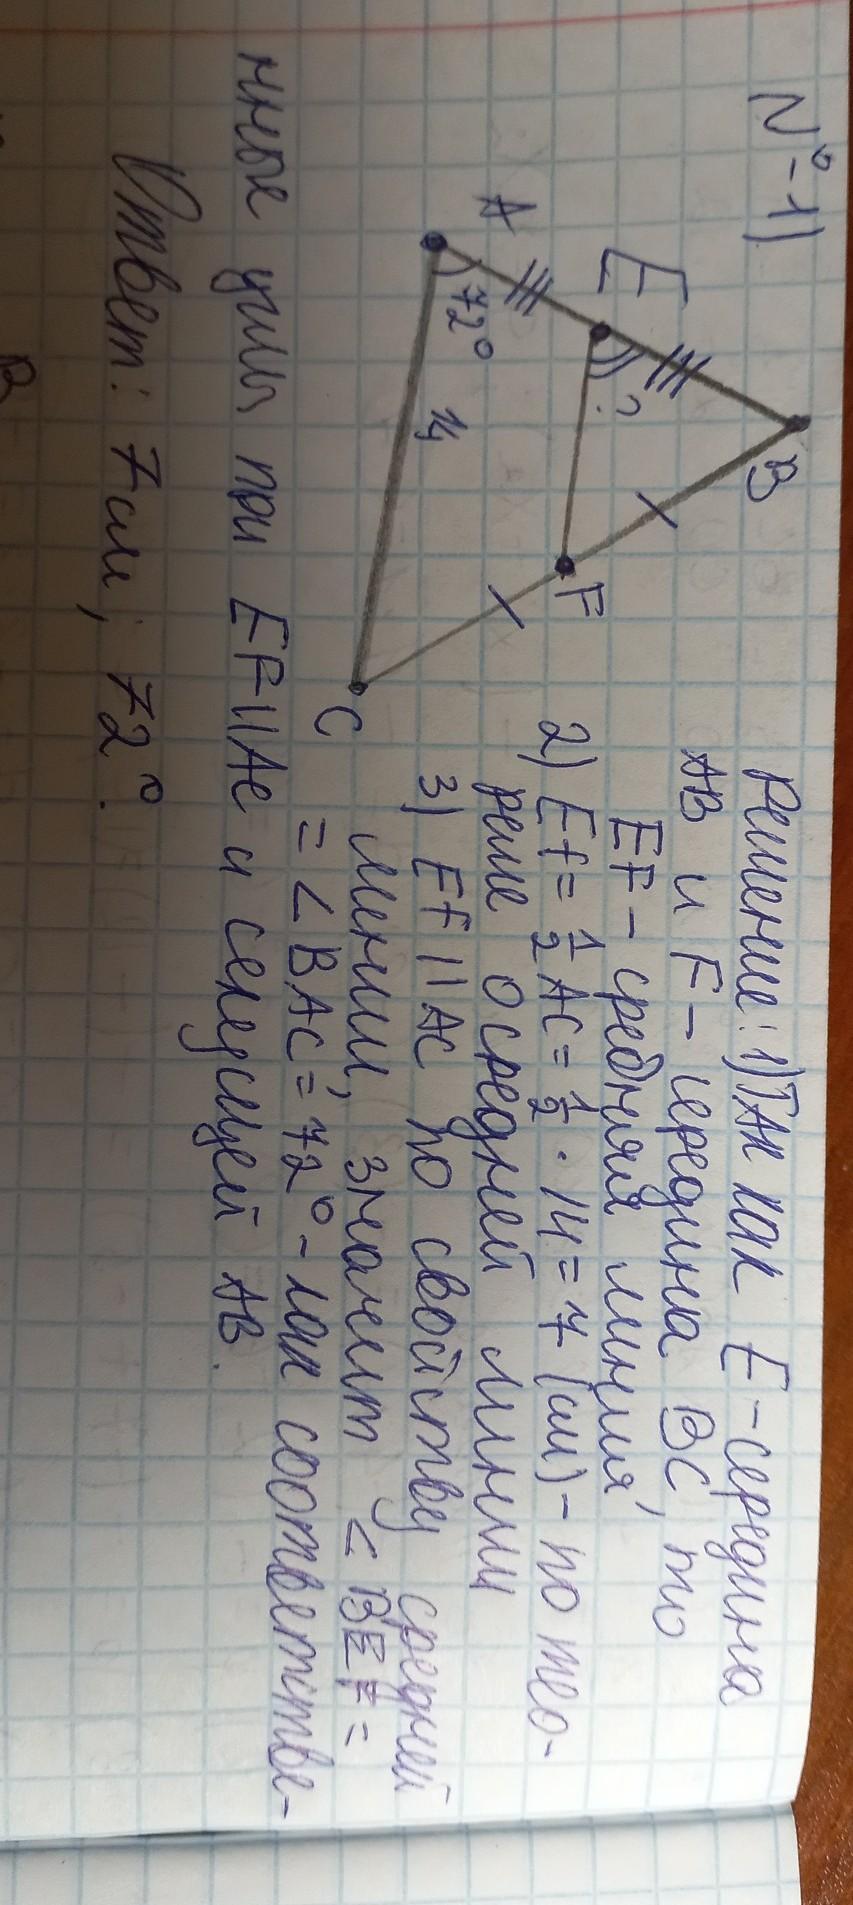 N°-1)
A
E
B
72°
?
14
F
C
Решение: 1) Так как E-середина
AB и F-середина BC, то
EF-средняя линия
2) EF=1/2 AC=1/2·14=7 (см)-по тео-
реме о средней линии
3) EF || AC по свойству средней
линии, значит ∠BEF=
=∠BAC=72°-как соответстве-
нные углы при EF||AC и секущей AB.
Ответ: 7см; 72°.